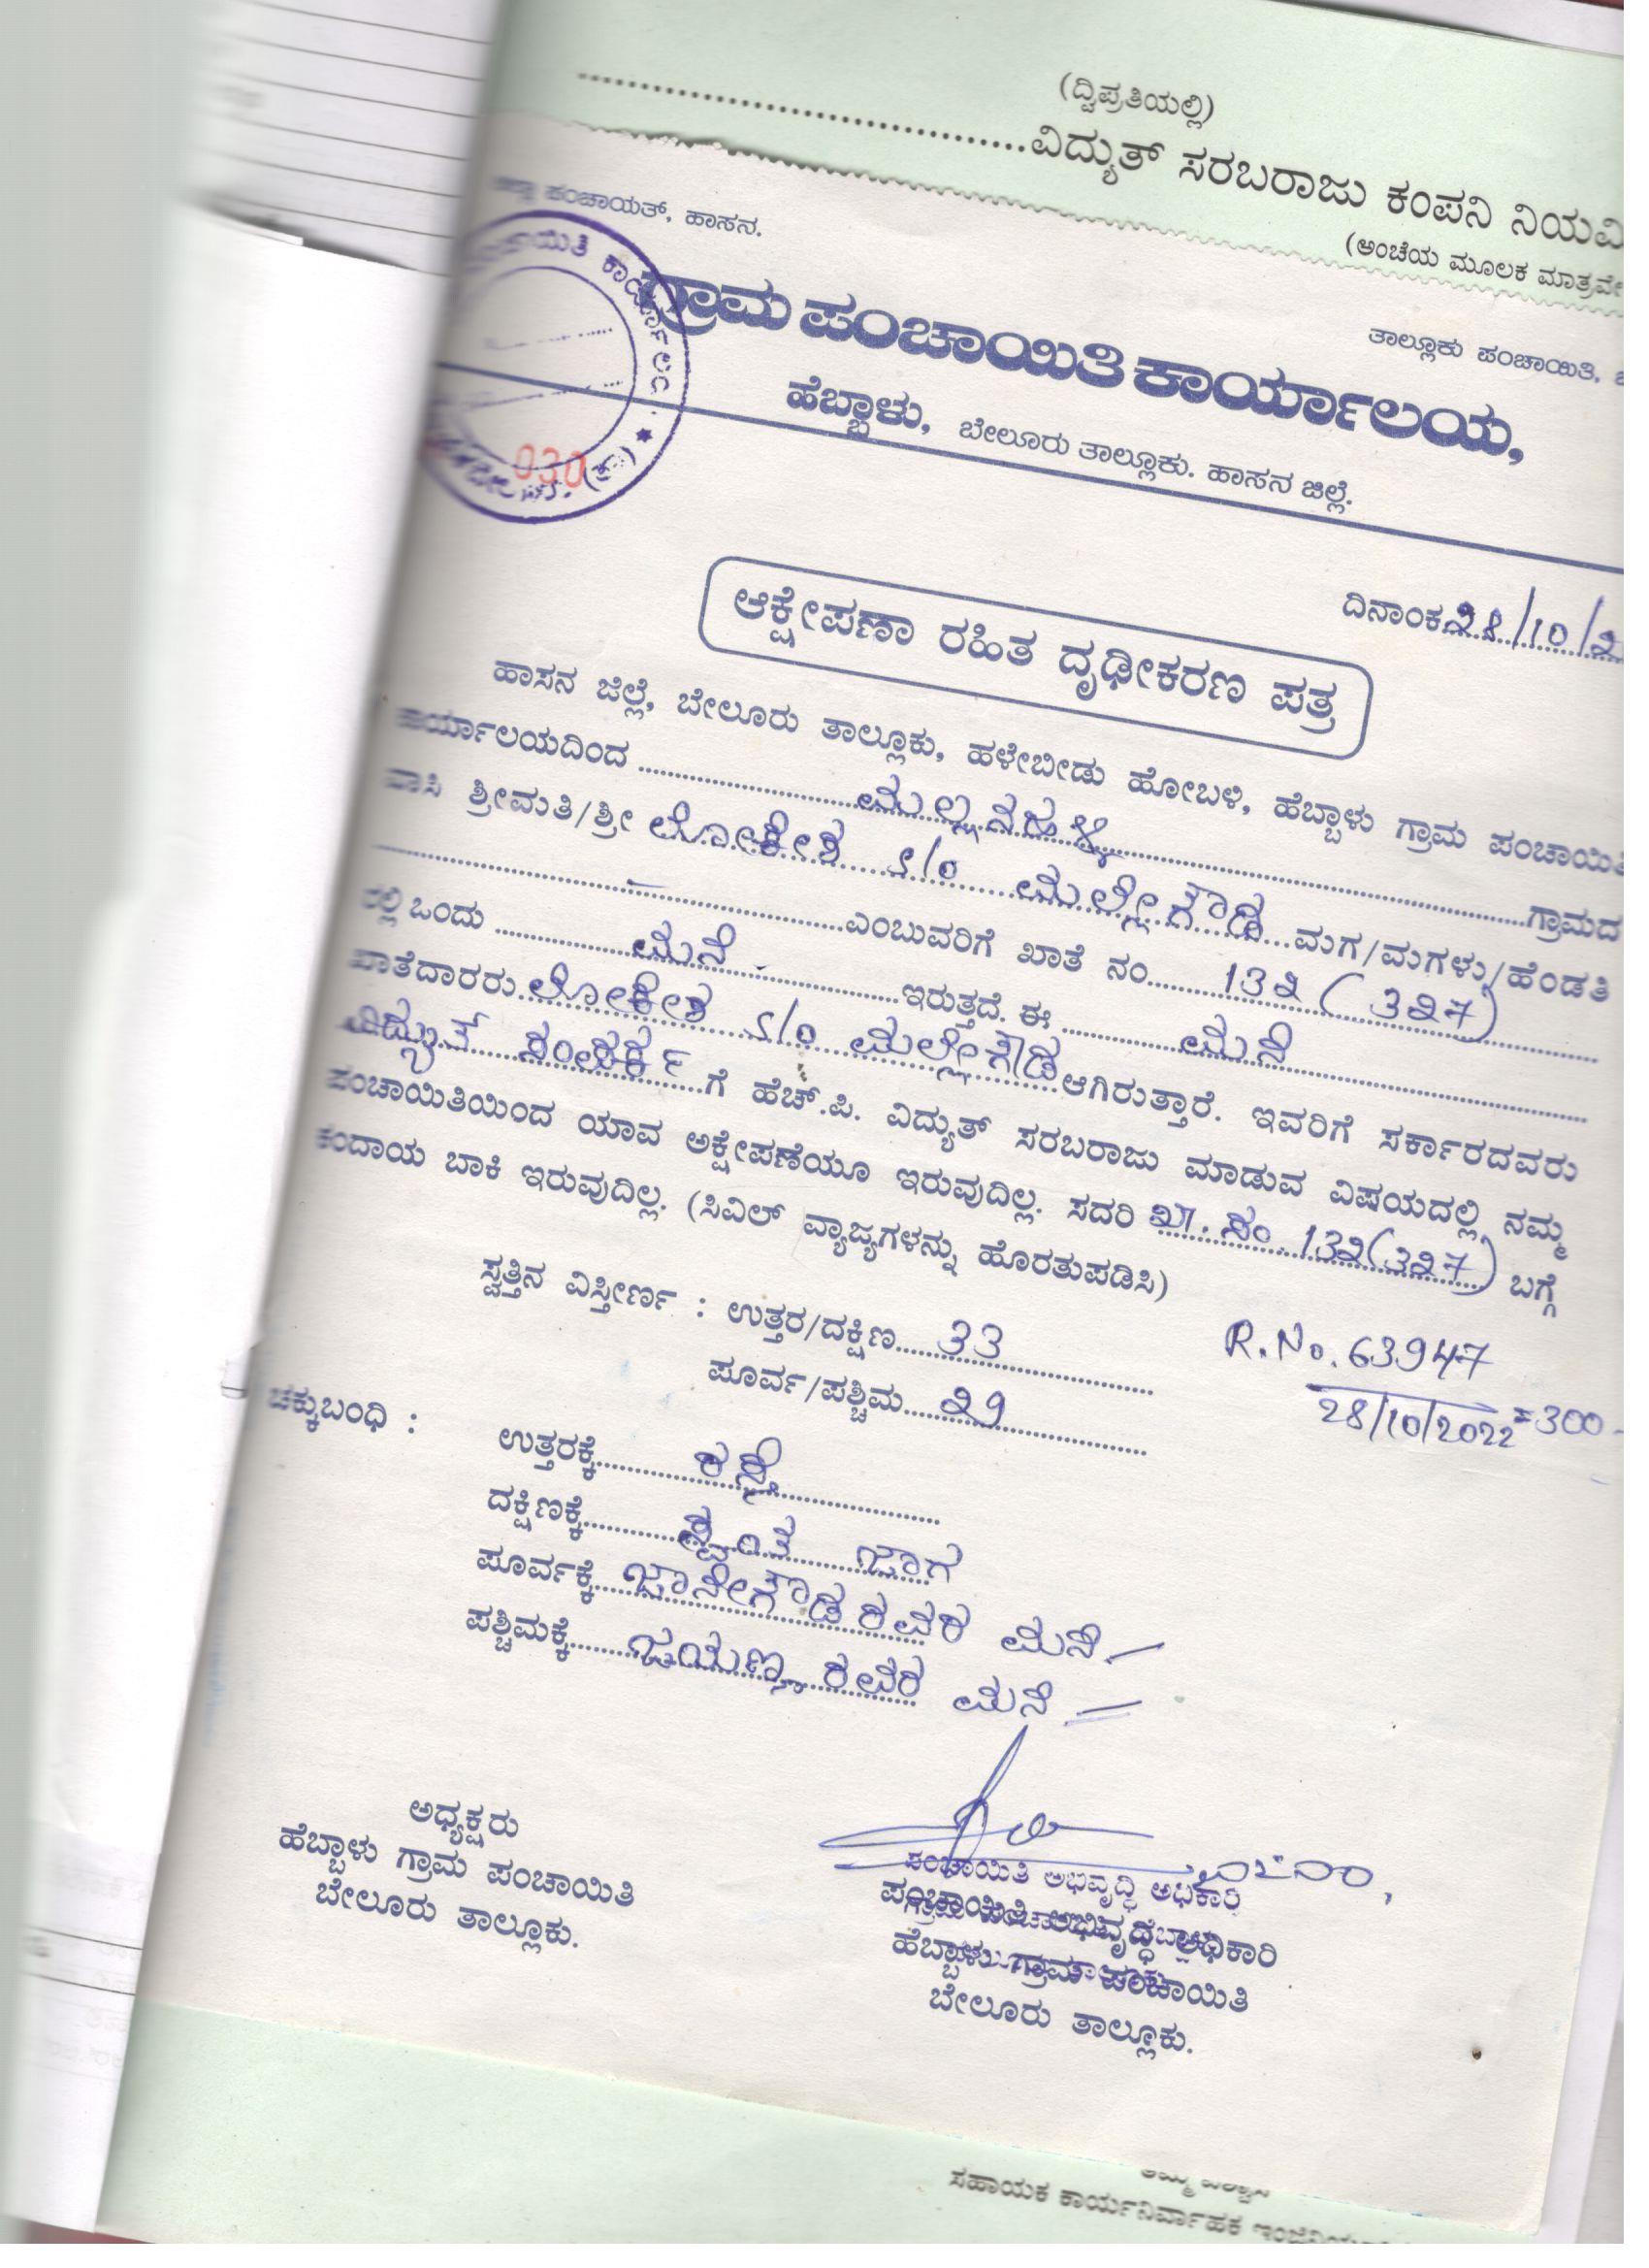 (ದ್ವಿಪ್ರತಿಯಲ್ಲಿ)
ವಿದ್ಯುತ್ ಸರಬರಾಜು ಕಂಪನಿ ನಿಯಮಿ
(ಅಂಚೆಯ ಮೂಲಕ ಮಾತ್ರವೇ
ಪಂಚಾಯತ್, ಹಾಸನ.
ತಾಲ್ಲೂಕು ಪಂಚಾಯಿತಿ,
ಗ್ರಾಮ ಪಂಚಾಯಿತಿ ಕಾರ್ಯಾಲಯ,
ಹೆಬ್ಬಾಳು, ಬೇಲೂರು ತಾಲ್ಲೂಕು. ಹಾಸನ ಜಿಲ್ಲೆ.
030
ದಿನಾಂಕ 28/10/2
ಆಕ್ಷೇಪಣಾ ರಹಿತ ದೃಢೀಕರಣ ಪತ್ರ
ಹಾಸನ ಜಿಲ್ಲೆ, ಬೇಲೂರು ತಾಲ್ಲೂಕು, ಹಳೇಬೀಡು ಹೋಬಳಿ, ಹೆಬ್ಬಾಳು ಗ್ರಾಮ ಪಂಚಾಯಿತಿ
ಕಾರ್ಯಾಲಯದಿಂದ ಮಲ್ಲನಹಳ್ಳಿ ಗ್ರಾಮದ
ವಾಸಿ ಶ್ರೀಮತಿ/ಶ್ರೀ ಲೋಕೇಶ s/o ಮಲ್ಲೇಗೌಡ ಮಗ/ಮಗಳು/ಹೆಂಡತಿ
ಎಂಬುವರಿಗೆ ಖಾತೆ ನಂ 132 (327)
ರಲ್ಲಿ ಒಂದು ಮನೆ ಇರುತ್ತದೆ. ಈ ಮನೆ
ಖಾತೆದಾರರು ಲೋಕೇಶ s/o ಮಲ್ಲೇಗೌಡ ಆಗಿರುತ್ತಾರೆ. ಇವರಿಗೆ ಸರ್ಕಾರದವರು
ವಿದ್ಯುತ್ ಸಂಪರ್ಕ ಗೆ ಹೆಚ್.ಪಿ. ವಿದ್ಯುತ್ ಸರಬರಾಜು ಮಾಡುವ ವಿಷಯದಲ್ಲಿ ನಮ್ಮ
ಪಂಚಾಯಿತಿಯಿಂದ ಯಾವ ಅಕ್ಷೇಪಣೆಯೂ ಇರುವುದಿಲ್ಲ. ಸದರಿ ಖಾ. ನಂ. 132(327) ಬಗ್ಗೆ
ಕಂದಾಯ ಬಾಕಿ ಇರುವುದಿಲ್ಲ. (ಸಿವಿಲ್ ವ್ಯಾಜ್ಯಗಳನ್ನು ಹೊರತುಪಡಿಸಿ)
ಸ್ವತ್ತಿನ ವಿಸ್ತೀರ್ಣ : ಉತ್ತರ/ದಕ್ಷಿಣ 33
R.No. 63947
ಪೂರ್ವ/ಪಶ್ಚಿಮ 29
28/10/2022 = 300
ಚಕ್ಕುಬಂಧಿ :
ಉತ್ತರಕ್ಕೆ ರಸ್ತೆ
ದಕ್ಷಿಣಕ್ಕೆ ಸ್ವಂತ ಜಾಗ
ಪೂರ್ವಕ್ಕೆ ಜಾನೇಗೌಡ ರವರ ಮನೆ
ಪಶ್ಚಿಮಕ್ಕೆ ಜಯಣ್ಣ ರವರ ಮನೆ
ಅಧ್ಯಕ್ಷರು
ಹೆಬ್ಬಾಳು ಗ್ರಾಮ ಪಂಚಾಯಿತಿ
ಬೇಲೂರು ತಾಲ್ಲೂಕು.
ಪಂಚಾಯಿತಿ ಅಭಿವೃದ್ಧಿ ಅಧಿಕಾರಿ
ಪಂಚಾಯಿತಿ ಅಭಿವೃದ್ಧಿ ಅಧಿಕಾರಿ
ಹೆಬ್ಬಾಳು ಗ್ರಾಮ ಪಂಚಾಯಿತಿ
ಬೇಲೂರು ತಾಲ್ಲೂಕು.
ಸಹಾಯಕ ಕಾರ್ಯನಿರ್ವಾಹಕ